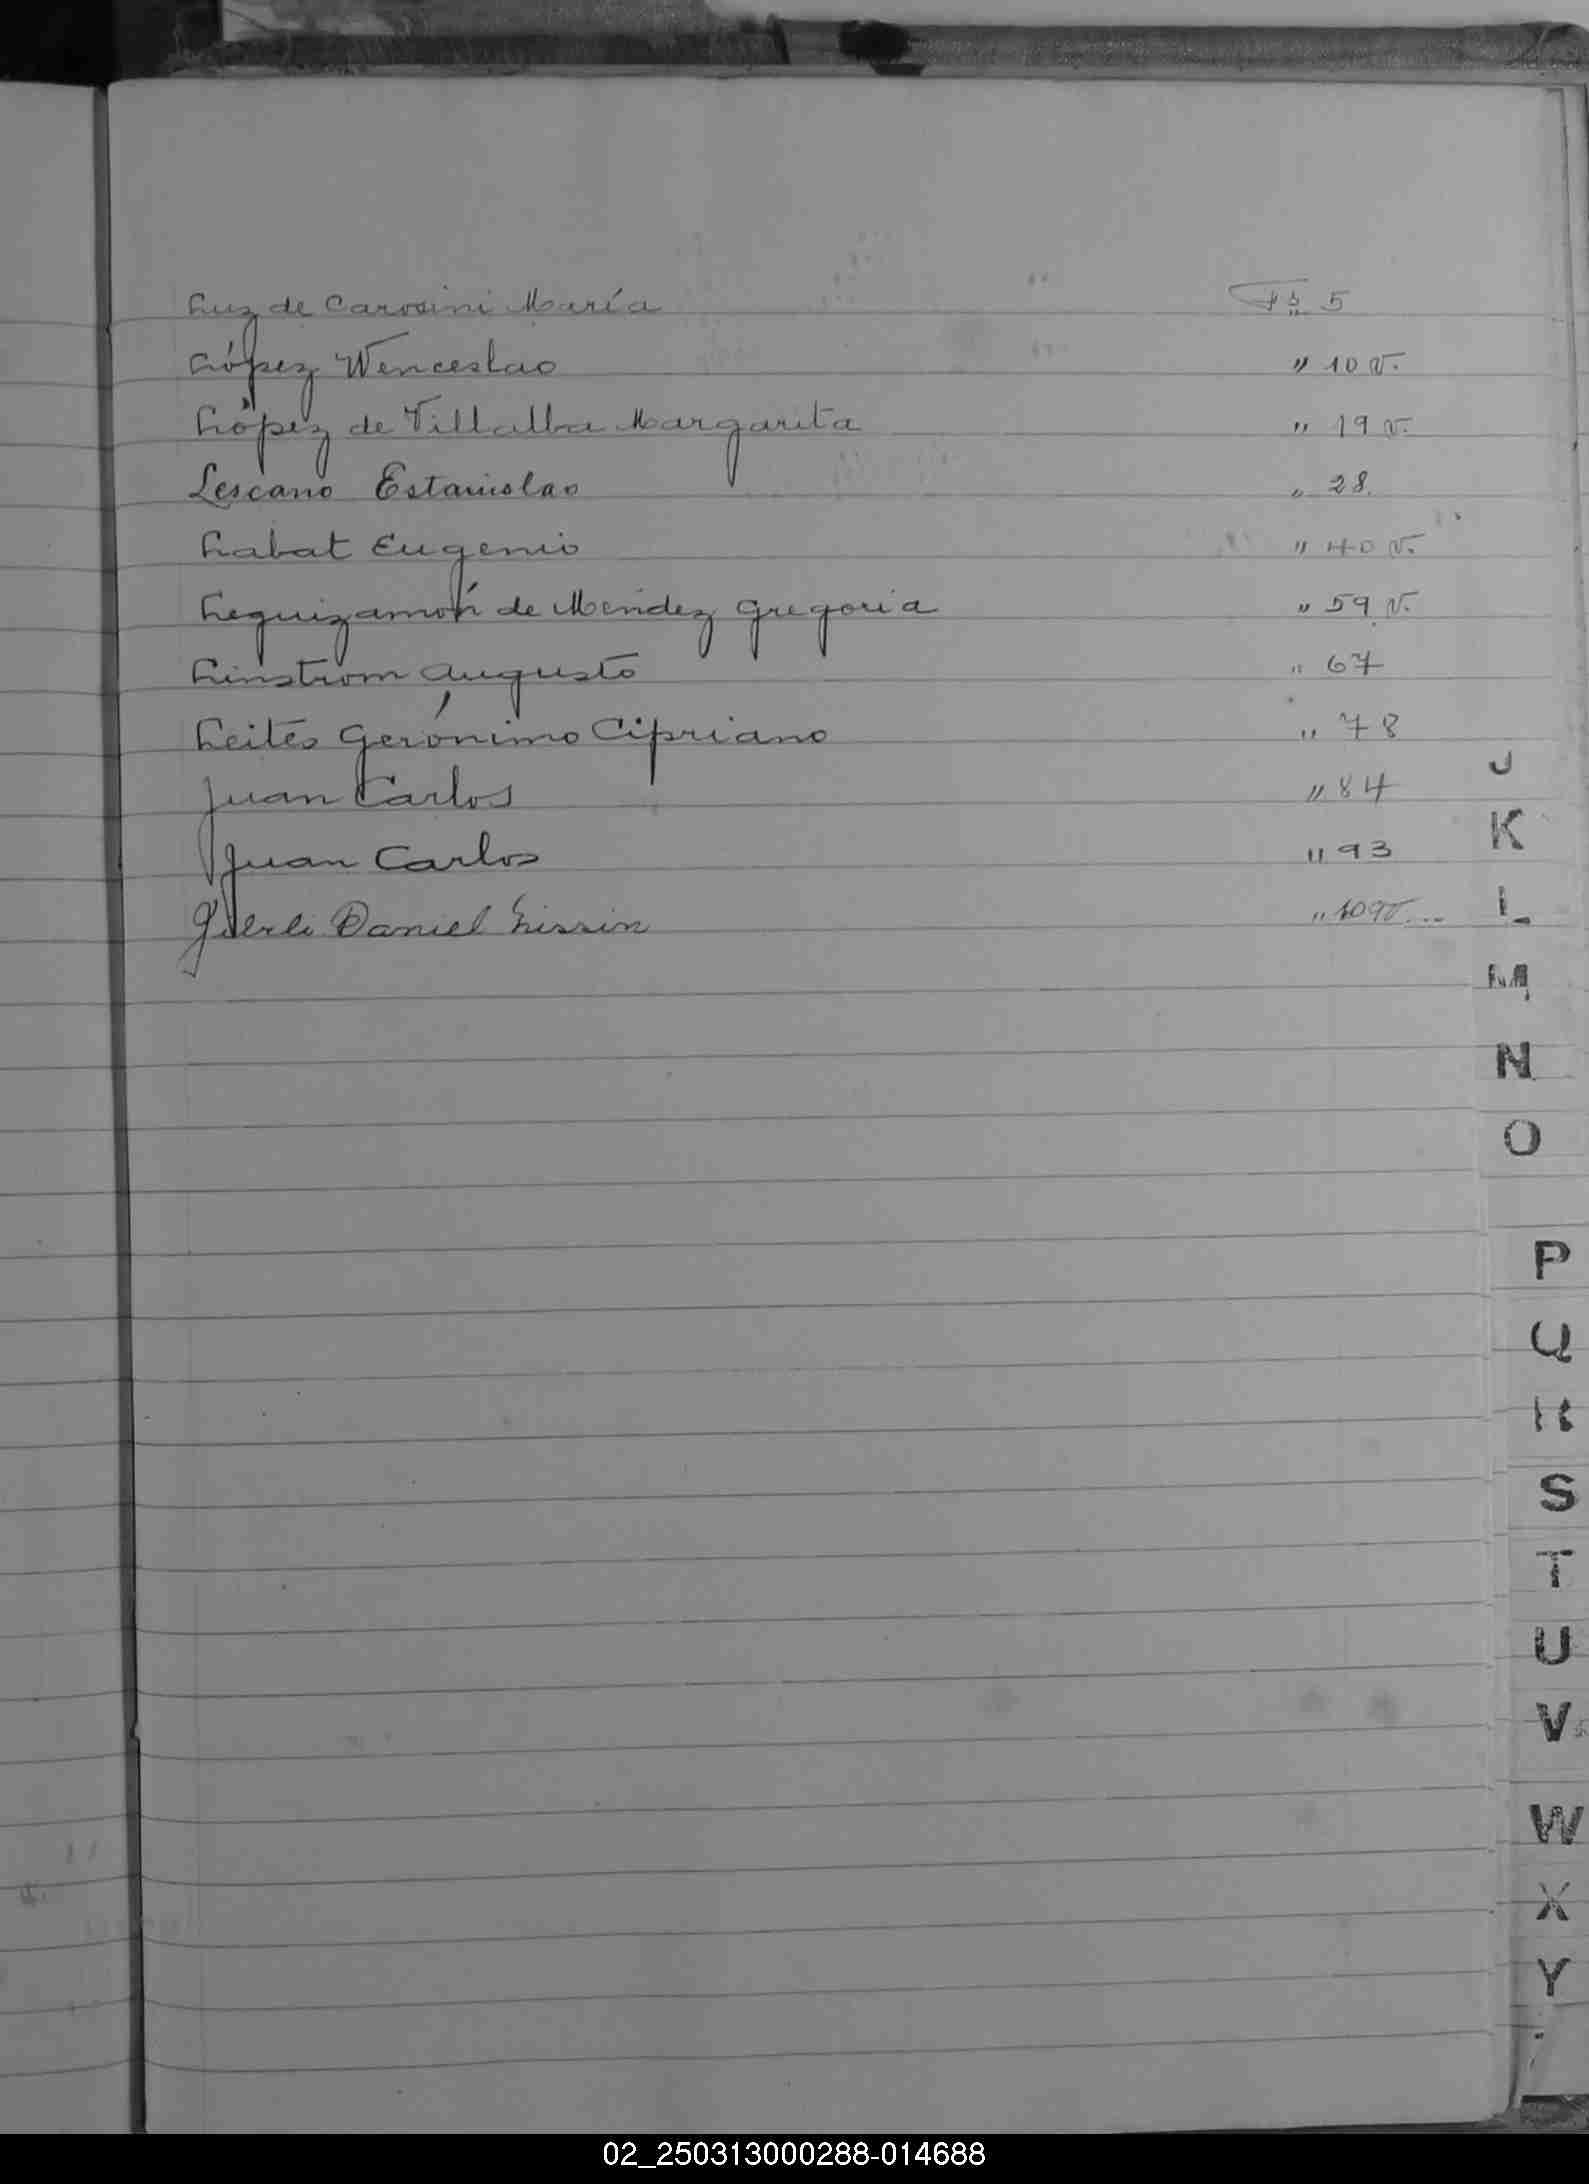 Luz de Carosini María Fs 5
López Wenceslao " 10 v.
López de Villalba Margarita " 19 v.
Lescano Estanislao " 28.
Labat Eugenio " 40 v.
Leguizamón de Mendez Gregoria " 59 v.
Linstrom Augusto " 67
Leites Gerónimo Cipriano " 78
Juan Carlos " 84
Juan Carlos " 93
Daniel Lissin " 109v...
J
K
L
M
N
O
P
Q
R
S
T
U
V
W
X
Y
02_250313000288-014688